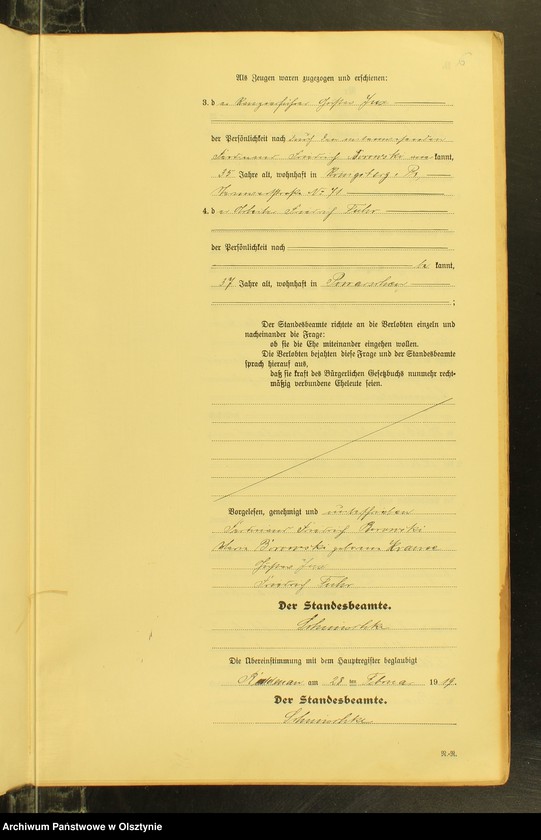 Als Zeugen waren zugezogen und erschienen:
3. d er Gustav
der Persönlichkeit nach durch den
Ferdinand Friedrich Borowski kannt,
35 Jahre alt, wohnhaft in Königsberg i. Pr.
No 71
4. d er Arbeiter Friedrich
der Persönlichkeit nach
be kannt,
37 Jahre alt, wohnhaft in
;
Der Standesbeamte richtete an die Verlobten einzeln und
nacheinander die Frage:
ob sie die Ehe miteinander eingehen wollen.
Die Verlobten bejahten diese Frage und der Standesbeamte
sprach hierauf aus,
daß sie kraft des Bürgerlichen Gesetzbuchs nunmehr recht-
mäßig verbundene Eheleute seien.
Vorgelesen, genehmigt und unterschrieben
Ferdinand Friedrich Borowski
Borowski geborene Krause
Gustav
Friedrich
Der Standesbeamte.
Die Übereinstimmung mit dem Hauptregister beglaubigt
am 28 ten Februar 19 19.
Der Standesbeamte.
N.-R.
Archiwum Państwowe w Olsztynie